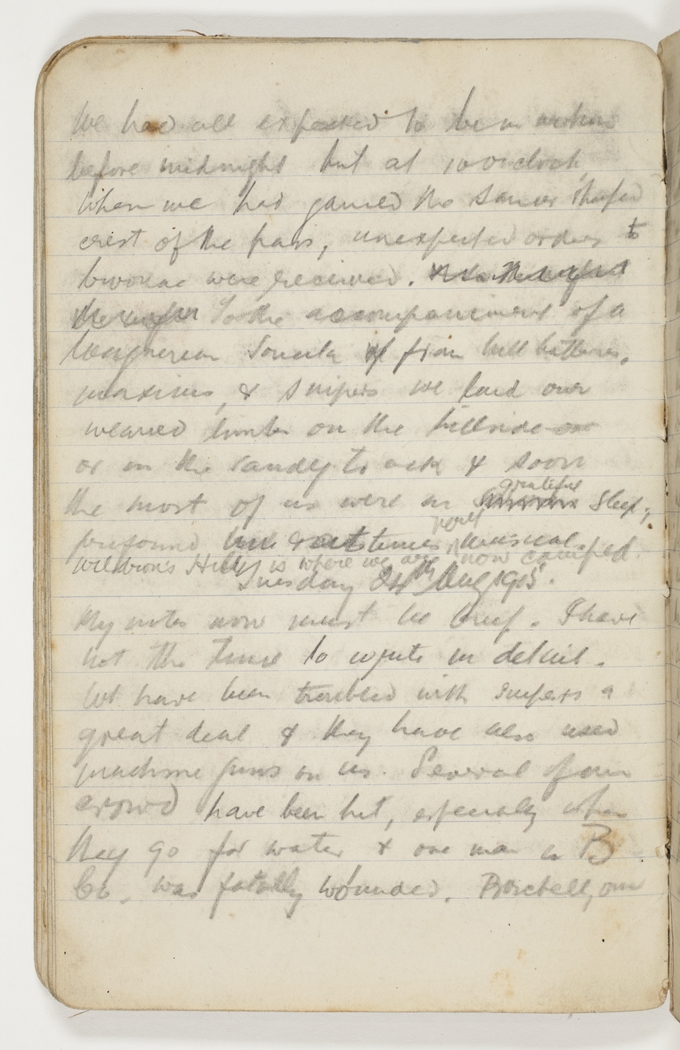 We had all expected to be in action
before midnight but at 10 o'clock,
when we had gained the saucer shaped
crest of the pass, unexpected orders to
bivouac were received.
To the accompaniment of a
Wagnerian Sonata from hill batteries,
maxims, & snipers we laid our
wearied limbs on the hillside
or in the sandy track & soon
the most of us were in grateful sleep,
profound & at times very musical.
Wilson's Hill is where we are now camped.
Tuesday 24th Aug 1915.
My notes now must be brief. I have
not the time to write in detail.
We have been troubled with snipers a
great deal & they have also used
machine guns on us. Several of our
crowd have been hit, especially when
they go for water & one man in B
Co. was fatally wounded. Burchell, our